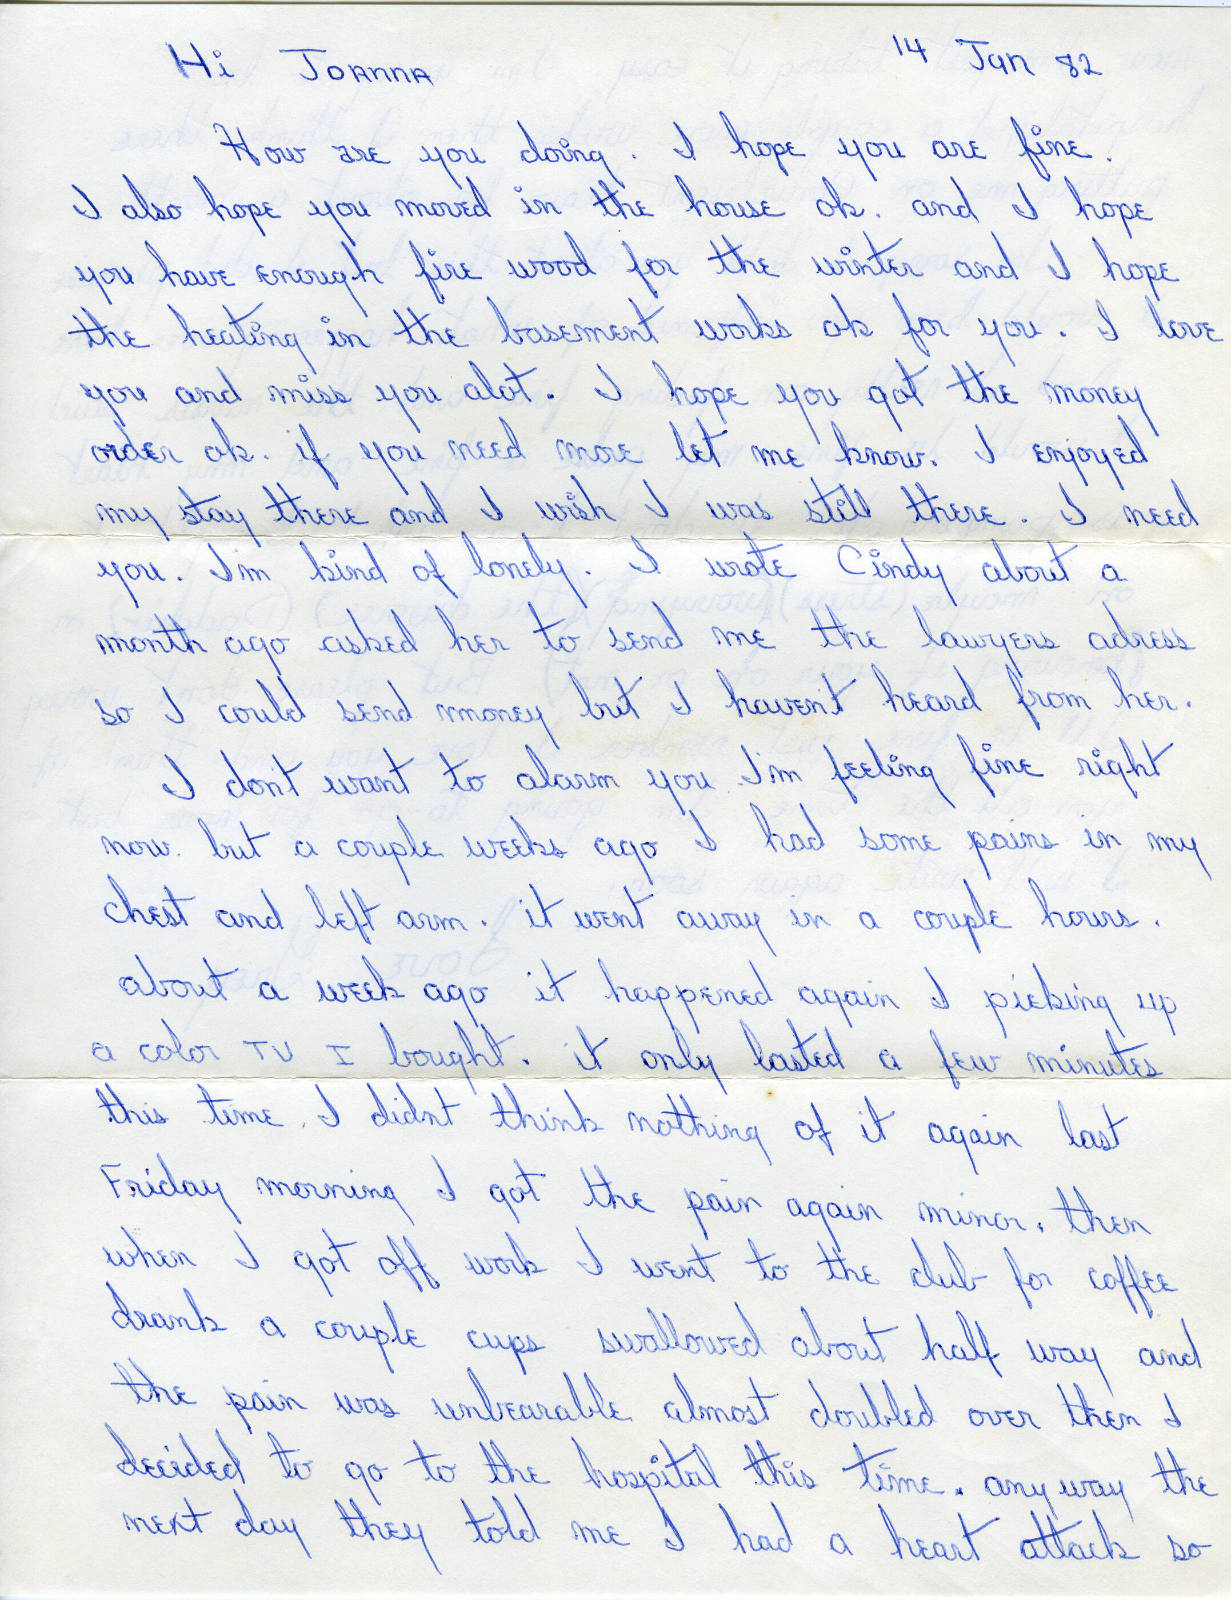 Hi Joanna 14 Jan 82
How are you doing. I hope you are fine.
I also hope you moved in the house ok. and I hope
you have enough fire wood for the winter and I hope
the heating in the basement works ok for you. I love
you and miss you alot. I hope you got the money
order ok. if you need more let me know. I enjoyed
my stay there and I wish I was still there. I need
you. I'm kind of lonely. I wrote Cindy about a
month ago asked her to send me the lawyers adress
so I could send money but I haven't heard from her.
I don't want to alarm you. I'm feeling fine right
now. but a couple weeks ago I had some pains in my
chest and left arm. it went away in a couple hours.
about a week ago it happened again I picking up
a color TV I bought. it only lasted a few minutes
this time. I didnt think nothing of it again last
Friday morning I got the pain again minor. then
when I got off work I went to the club for coffee
drank a couple cups swallowed about half way and
the pain was unbearable almost doubled over then I
decided to go to the hospital this time. anyway the
next day they told me I had a heart attack so